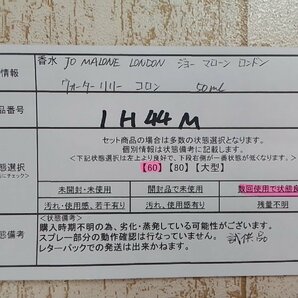 香水 JO MALONE LONDON ジョー マローン ロンドン
情報
ウォーターリリー コロン 50ml
品番号
1H44M
セット商品の場合は多数の状態選択となります。
個別情報は状態備考に記載します。
態選択
<下記状態選択は左上より良好で、下段右側が一番状態が低くなります>
にチェック>
【60】【80】【大型】
未開封・未使用 開封品で未使用 数回使用で状態良
汚れ・使用感、若干有り 汚れ、使用感有り 残量不明
<状態備考>
購入時期不明の為、劣化・蒸発している可能性がございます。
態備考
スプレー部分の動作確認は行なっていません。 試供品
レターパックでの発送は出来かねます。